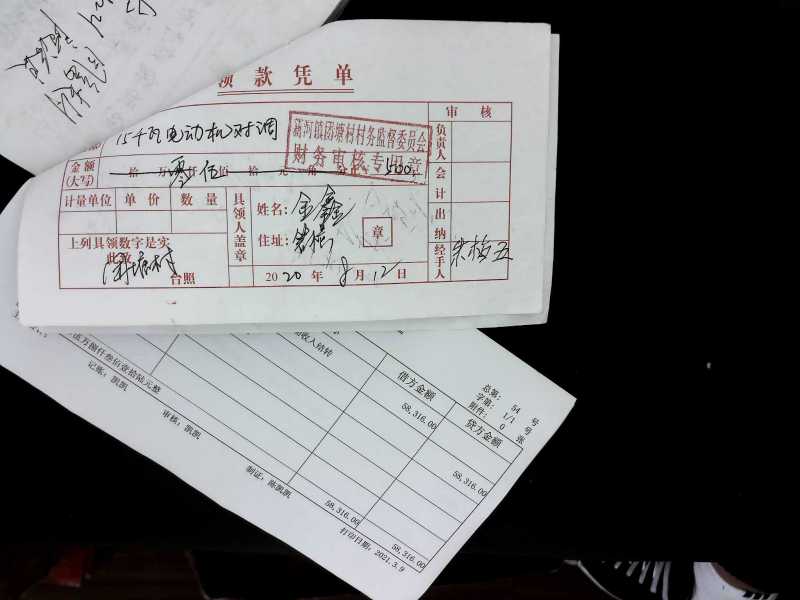 领款凭单
审 核
15千瓦电动机对调
新河镇团塘村村务监督委员会
财务审核专用章
负责人
金额
(大写)
拾 万 零 仟 伍 佰 拾 元 角 分 500
会计
计量单位 单 价 数 量
具领人盖章
姓名: 金鑫
住址:
章
出纳
上列具领数字是实
此致
台照
2020 年 8 月 12 日
经手人
朱梅五
总第: 54 号
字第: 1/1 号
附件: 0 张
收入结转
借方金额
贷方金额
58,316.00
58,316.00
伍万捌仟叁佰壹拾陆元整
58,316.00
58,316.00
记账: 凯凯
审核: 凯凯
制证: 陈凯凯
打印日期: 2021.3.9